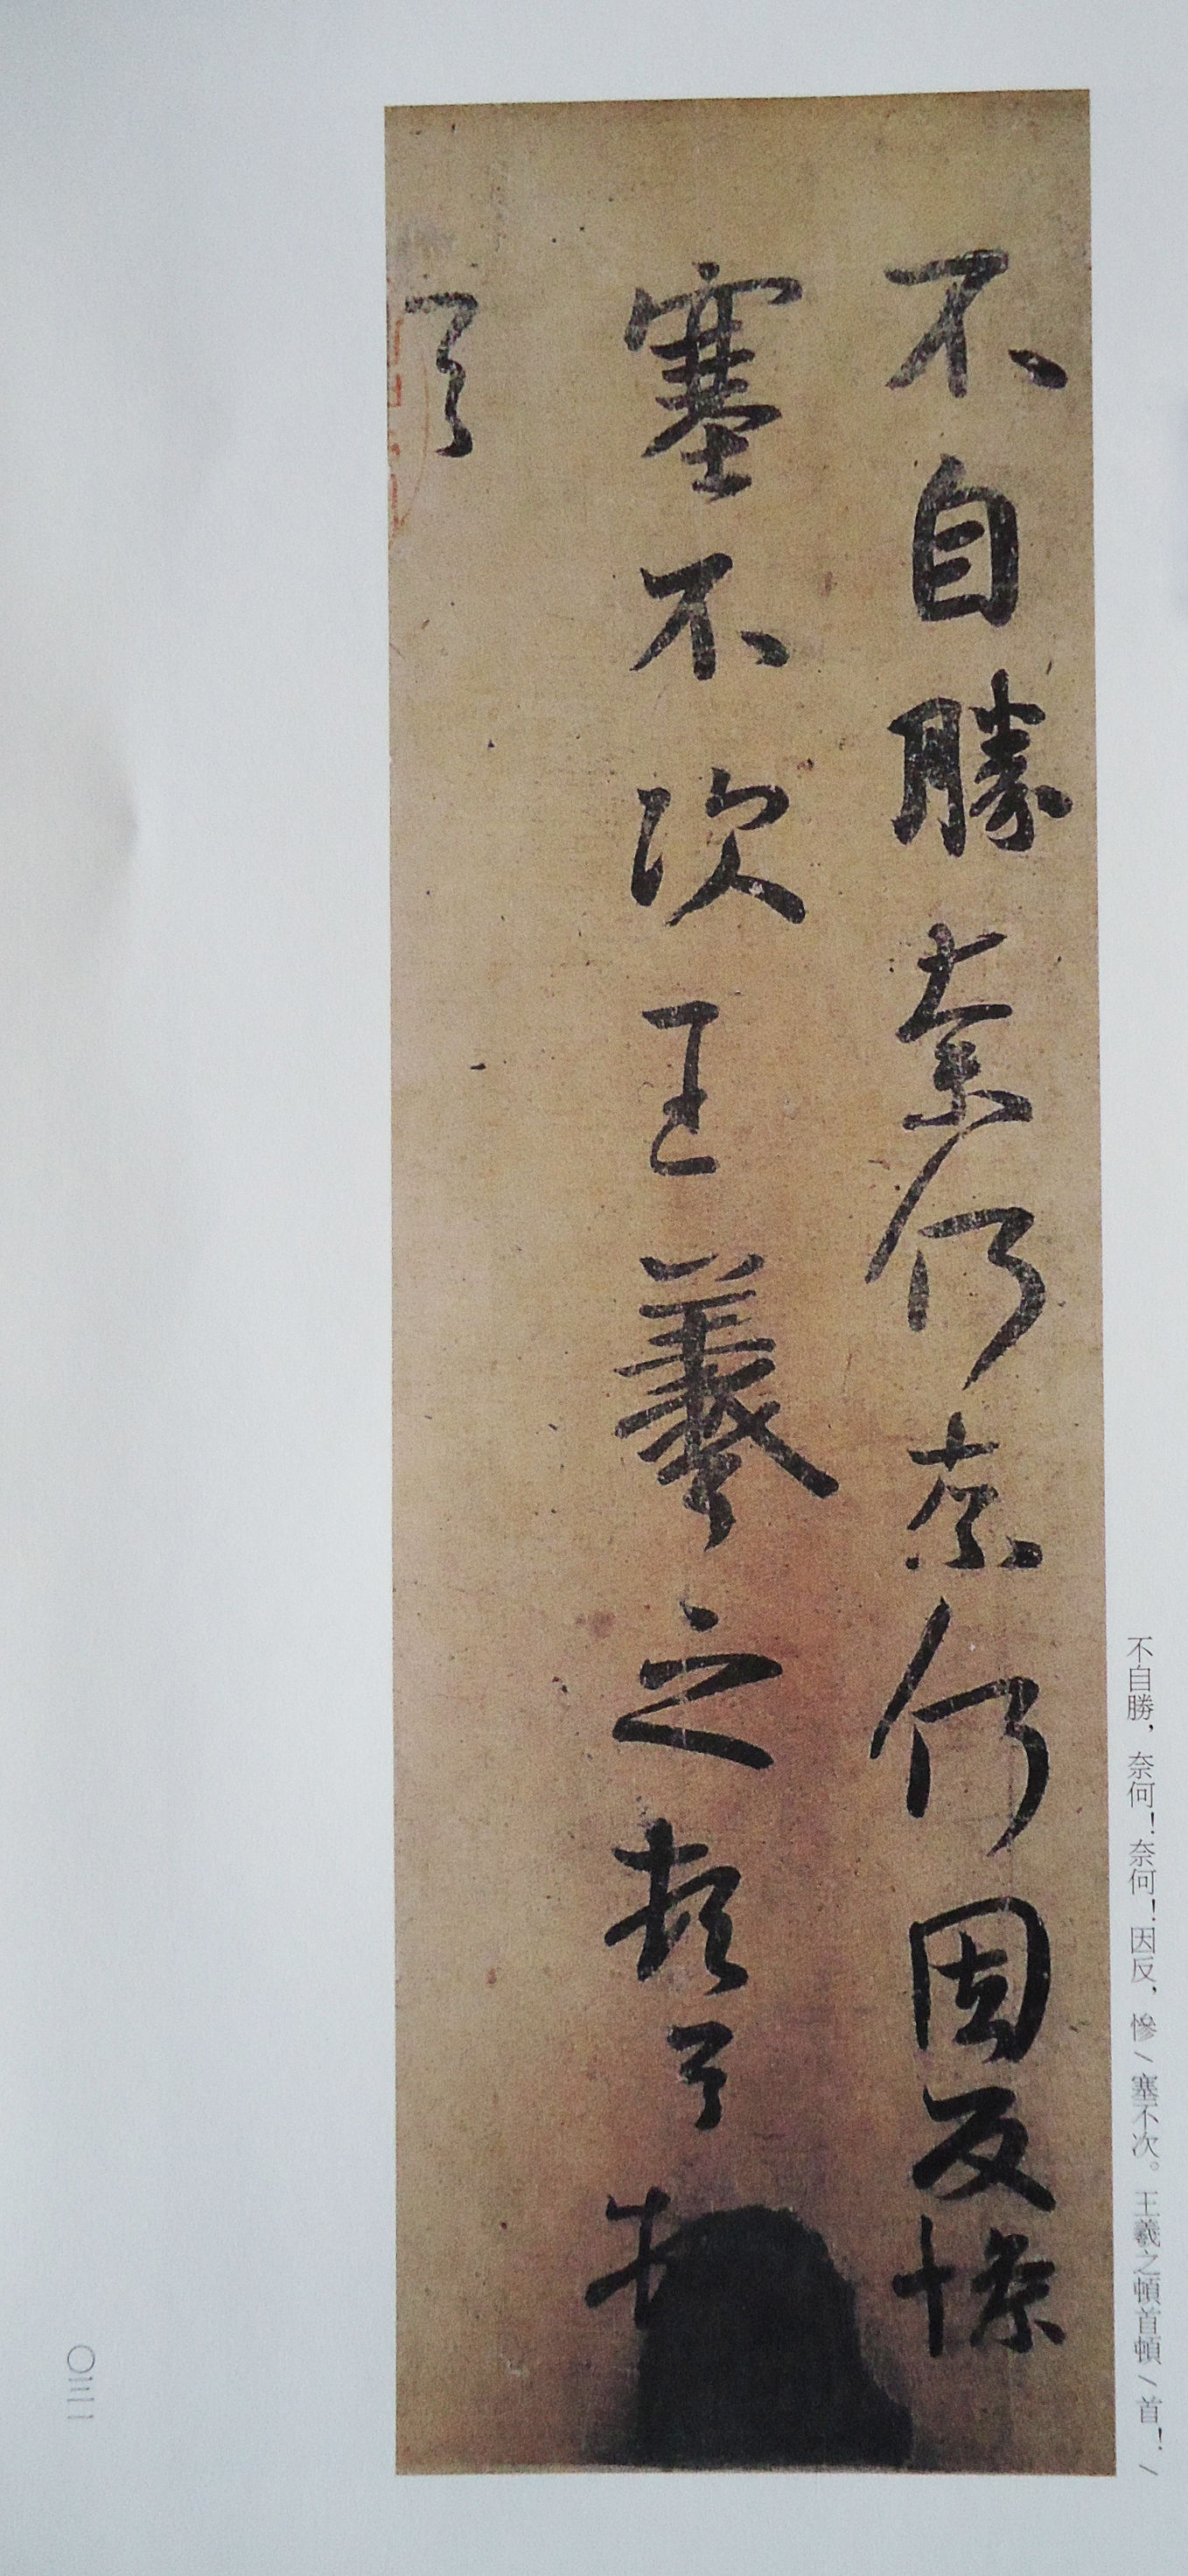 不自勝奈何奈何因反慘
塞不次王羲之頓首頓
首
不自勝，奈何！奈何！因反，慘/塞不次。王羲之頓首頓/首！/
〇三二